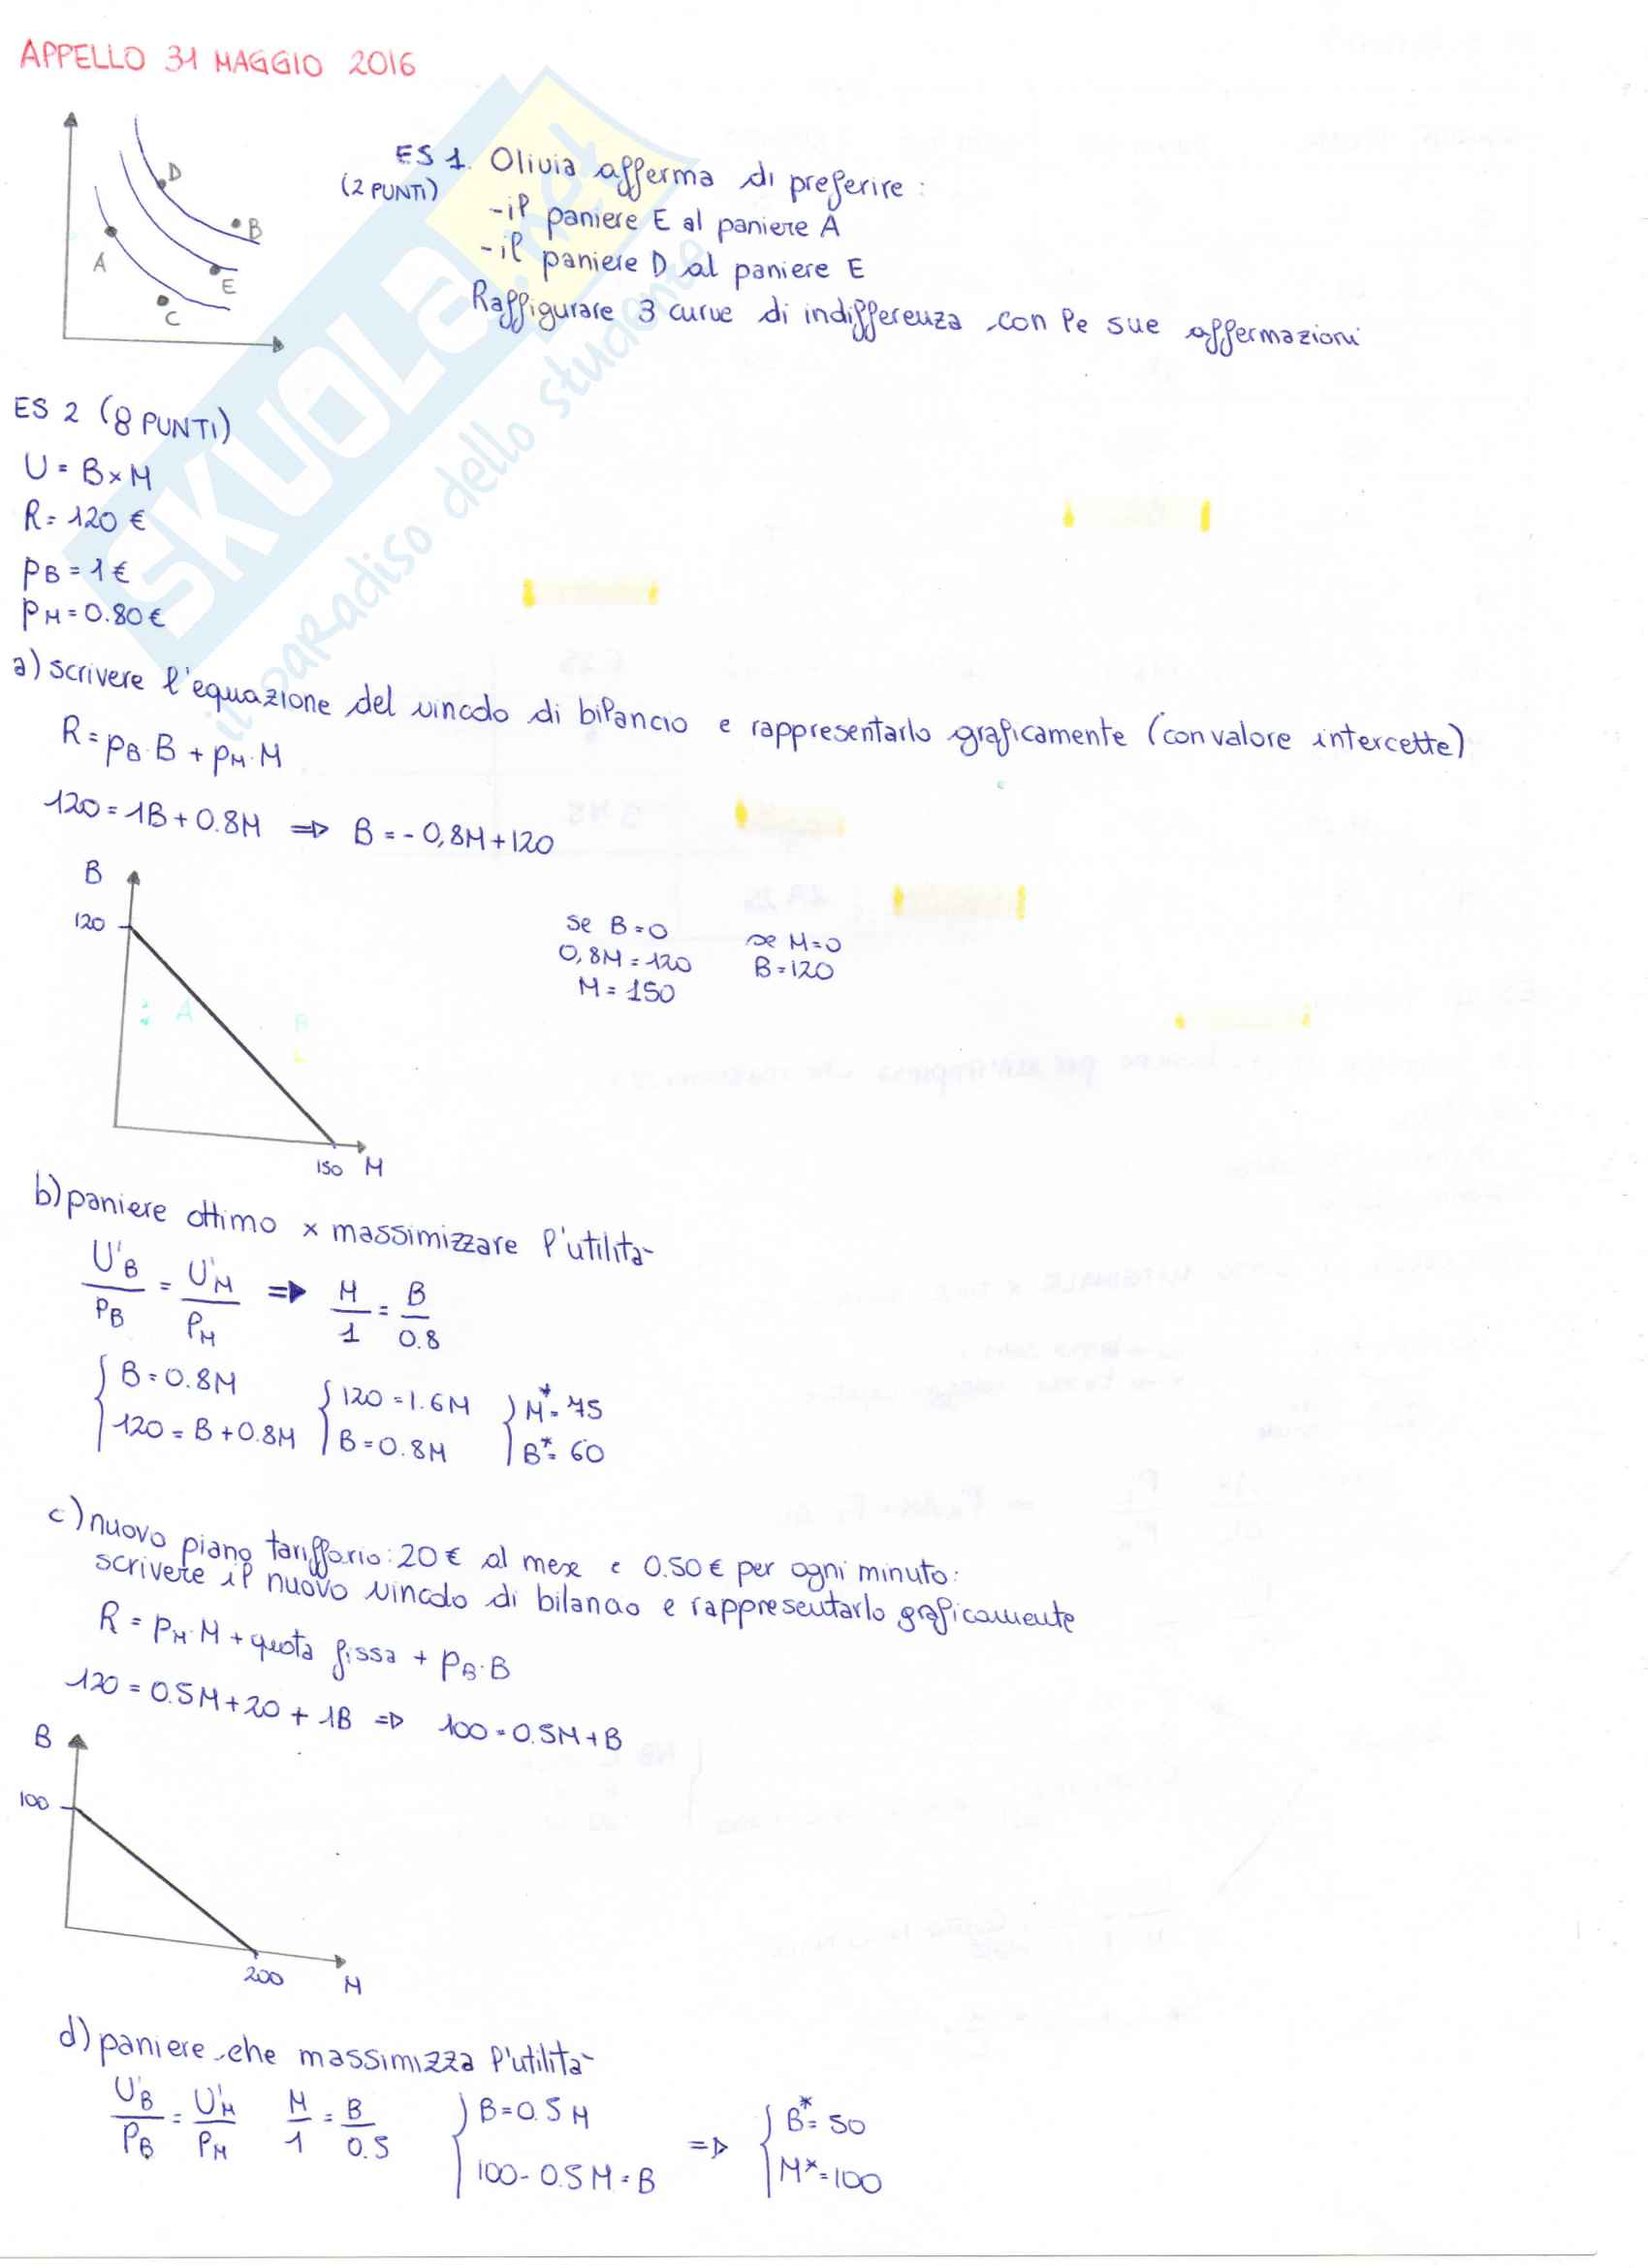 APPELLO 31 MAGGIO 2016
D
B
A
E
C
ES 1. Olivia afferma di preferire:
(2 PUNTI)
-il paniere E al paniere A
-il paniere D al paniere E
Raffigurare 3 curve di indifferenza con le sue affermazioni
SKUOLA.net
il paradiso dello studente
ES 2 (8 PUNTI)
U = B x M
R = 120 €
PB = 1 €
PM = 0.80 €
a) scrivere l'equazione del vincolo di bilancio e rappresentarlo graficamente (con valore intercette)
R = PB · B + PM · M
120 = 1B + 0.8M => B = - 0,8M + 120
B
120
se B = 0
0,8M = 120
M = 150
se M = 0
B = 120
150 M
b) paniere ottimo x massimizzare l'utilità
U'B/PB = U'M/PM => M/1 = B/0.8
{ B = 0.8M { 120 = 1.6M { M* = 75
120 = B + 0.8M B = 0.8M B* = 60
c) nuovo piano tariffario: 20 € al mese e 0.50 € per ogni minuto:
scrivere il nuovo vincolo di bilancio e rappresentarlo graficamente
R = PM · M + quota fissa + PB · B
120 = 0.5M + 20 + 1B => 100 = 0.5M + B
B
100
200 M
d) paniere che massimizza l'utilità
U'B/PB = U'M/PM M/1 = B/0.5 { B = 0.5 M => { B* = 50
100 - 0.5 M = B M* = 100